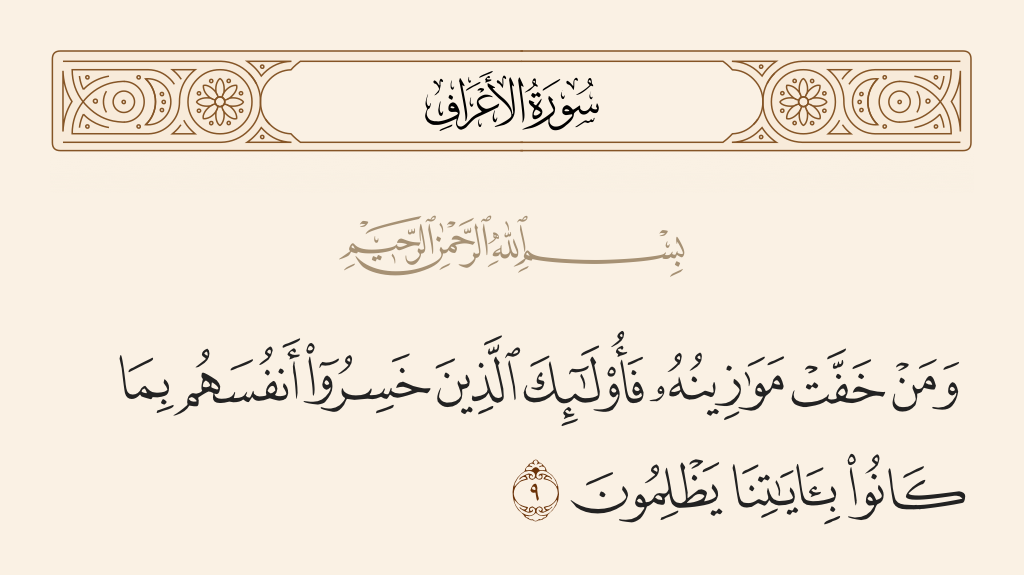 سُورَةُ الأَعْرَافِ
بِسْمِ ٱللَّهِ ٱلرَّحْمَٰنِ ٱلرَّحِيمِ
وَمَنْ خَفَّتْ مَوَٰزِينُهُۥ فَأُو۟لَـٰٓئِكَ ٱلَّذِينَ خَسِرُوٓا۟ أَنفُسَهُم بِمَا
كَانُوا۟ بِـَٔايَـٰتِنَا يَظْلِمُونَ ٩